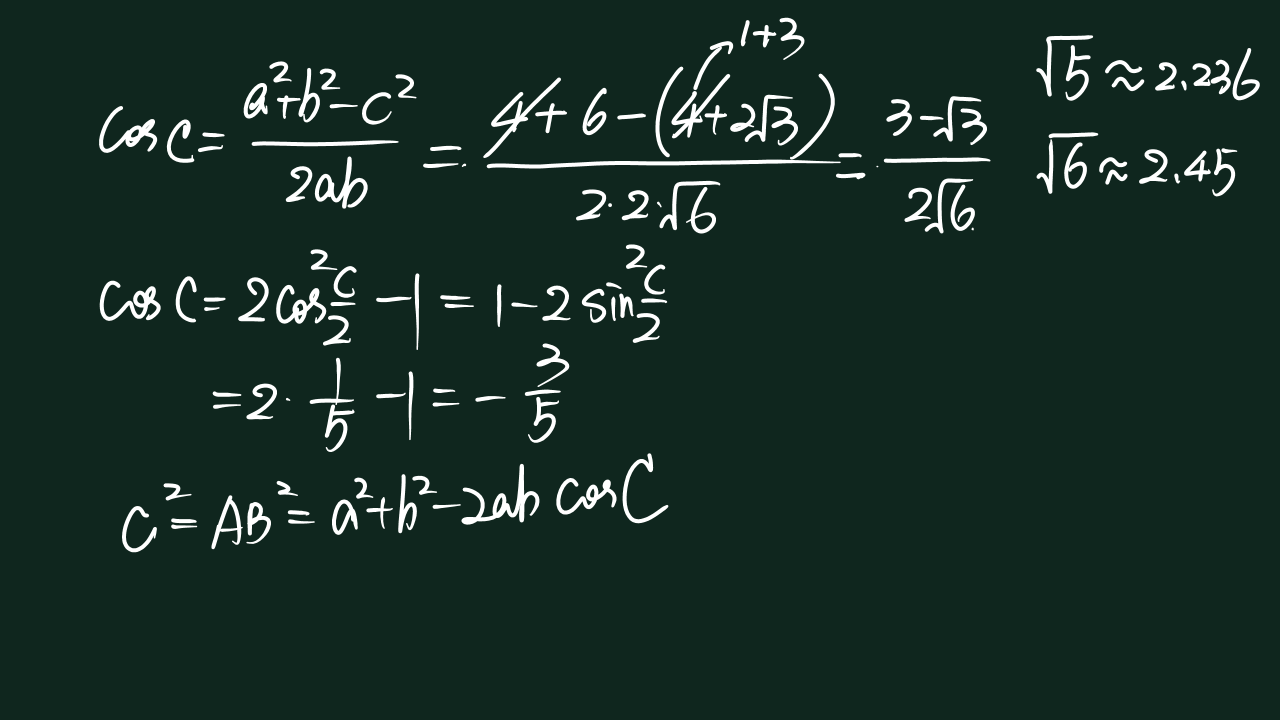 cos C = (a²+b²-c²)/(2ab) = (4+6-(4+2√3))/(2·2·√6) = (3-√3)/(2√6)
1+3
√5 ≈ 2.236
√6 ≈ 2.45
cos C = 2cos² C/2 - 1 = 1 - 2 sin² C/2
= 2 · 1/5 - 1 = - 3/5
C² = AB² = a²+b²-2ab cos C